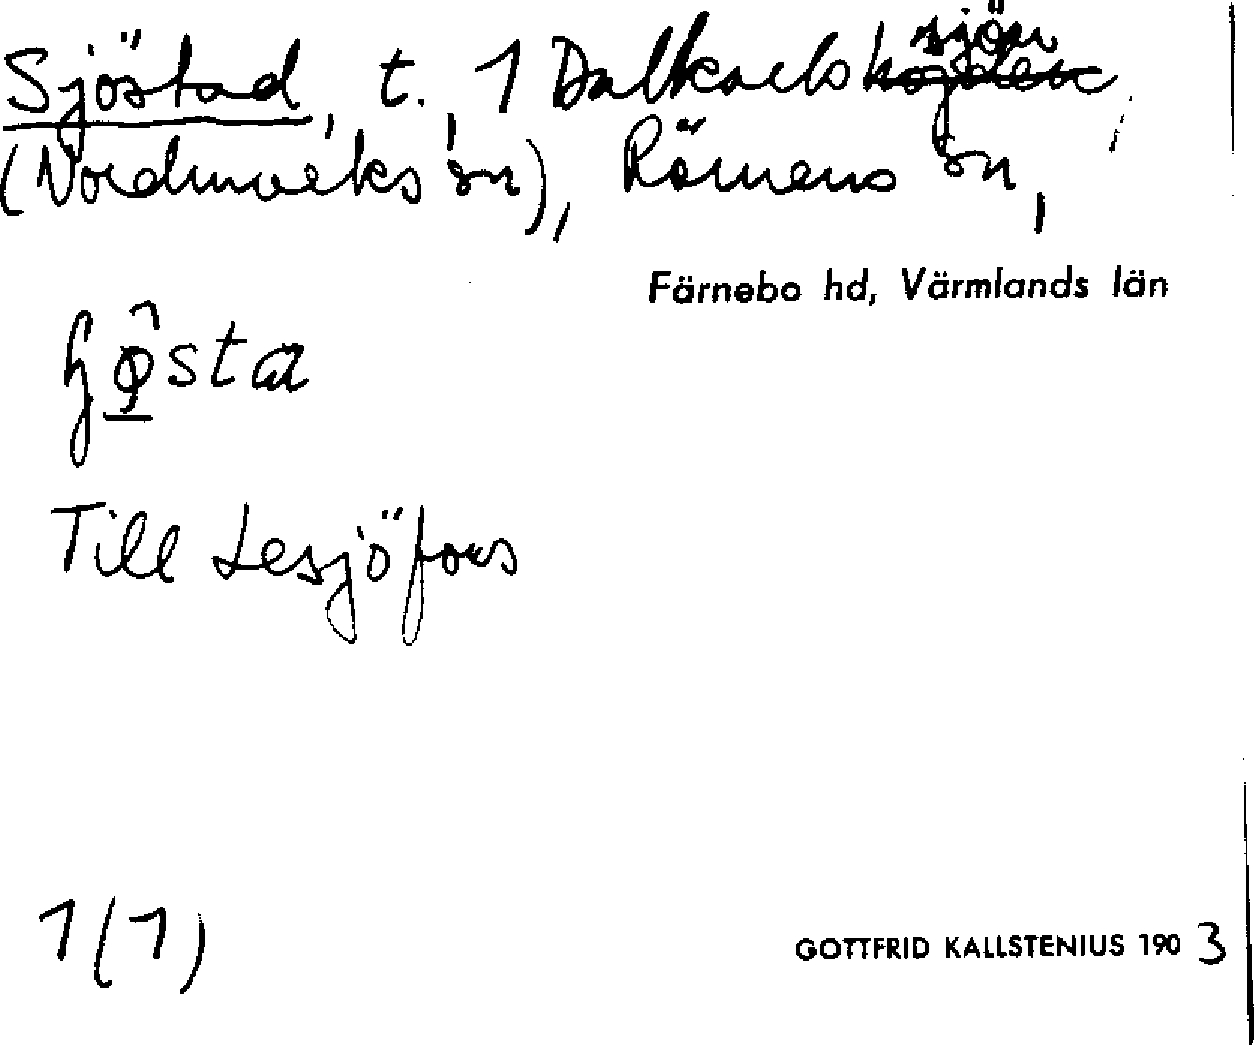 Sjöstad, t. 1 Dalkarlssjön,
(Nordmarks sn), Rämens sn,
Färnebo hd, Värmlands län
Till Lesjöfors
1(1)
GOTTFRID KALLSTENIUS 1903